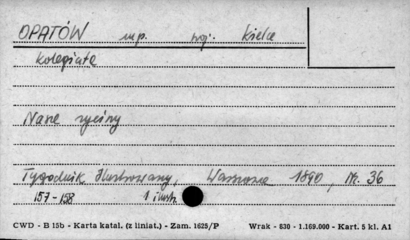 OPATÓW mp. woj. Kielce
Kolegiata
Nane ryciny
Tygodnik Ilustrowany, Warszawa 1890, Nr. 36
157-158 1 ilustr.
CWD - B 15b - Karta katal. (z liniat.) - Zam. 1625/P Wrak - 630 - 1.169.000 - Kart. 5 kl. A1